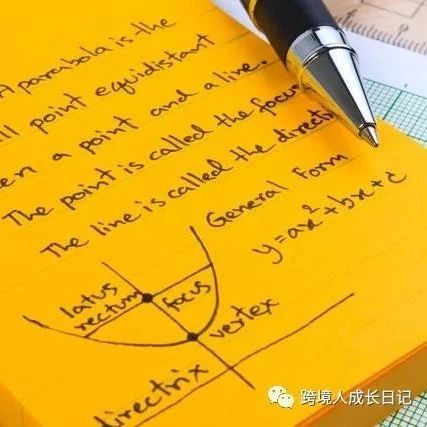 A parabola is the
ll point equidistant
en a point and a line.
The point is called the focus
The line is called the directri
General Form
y=ax²+bx+c
latus
rectum
focus
vertex
directrix
跨境人成长日记